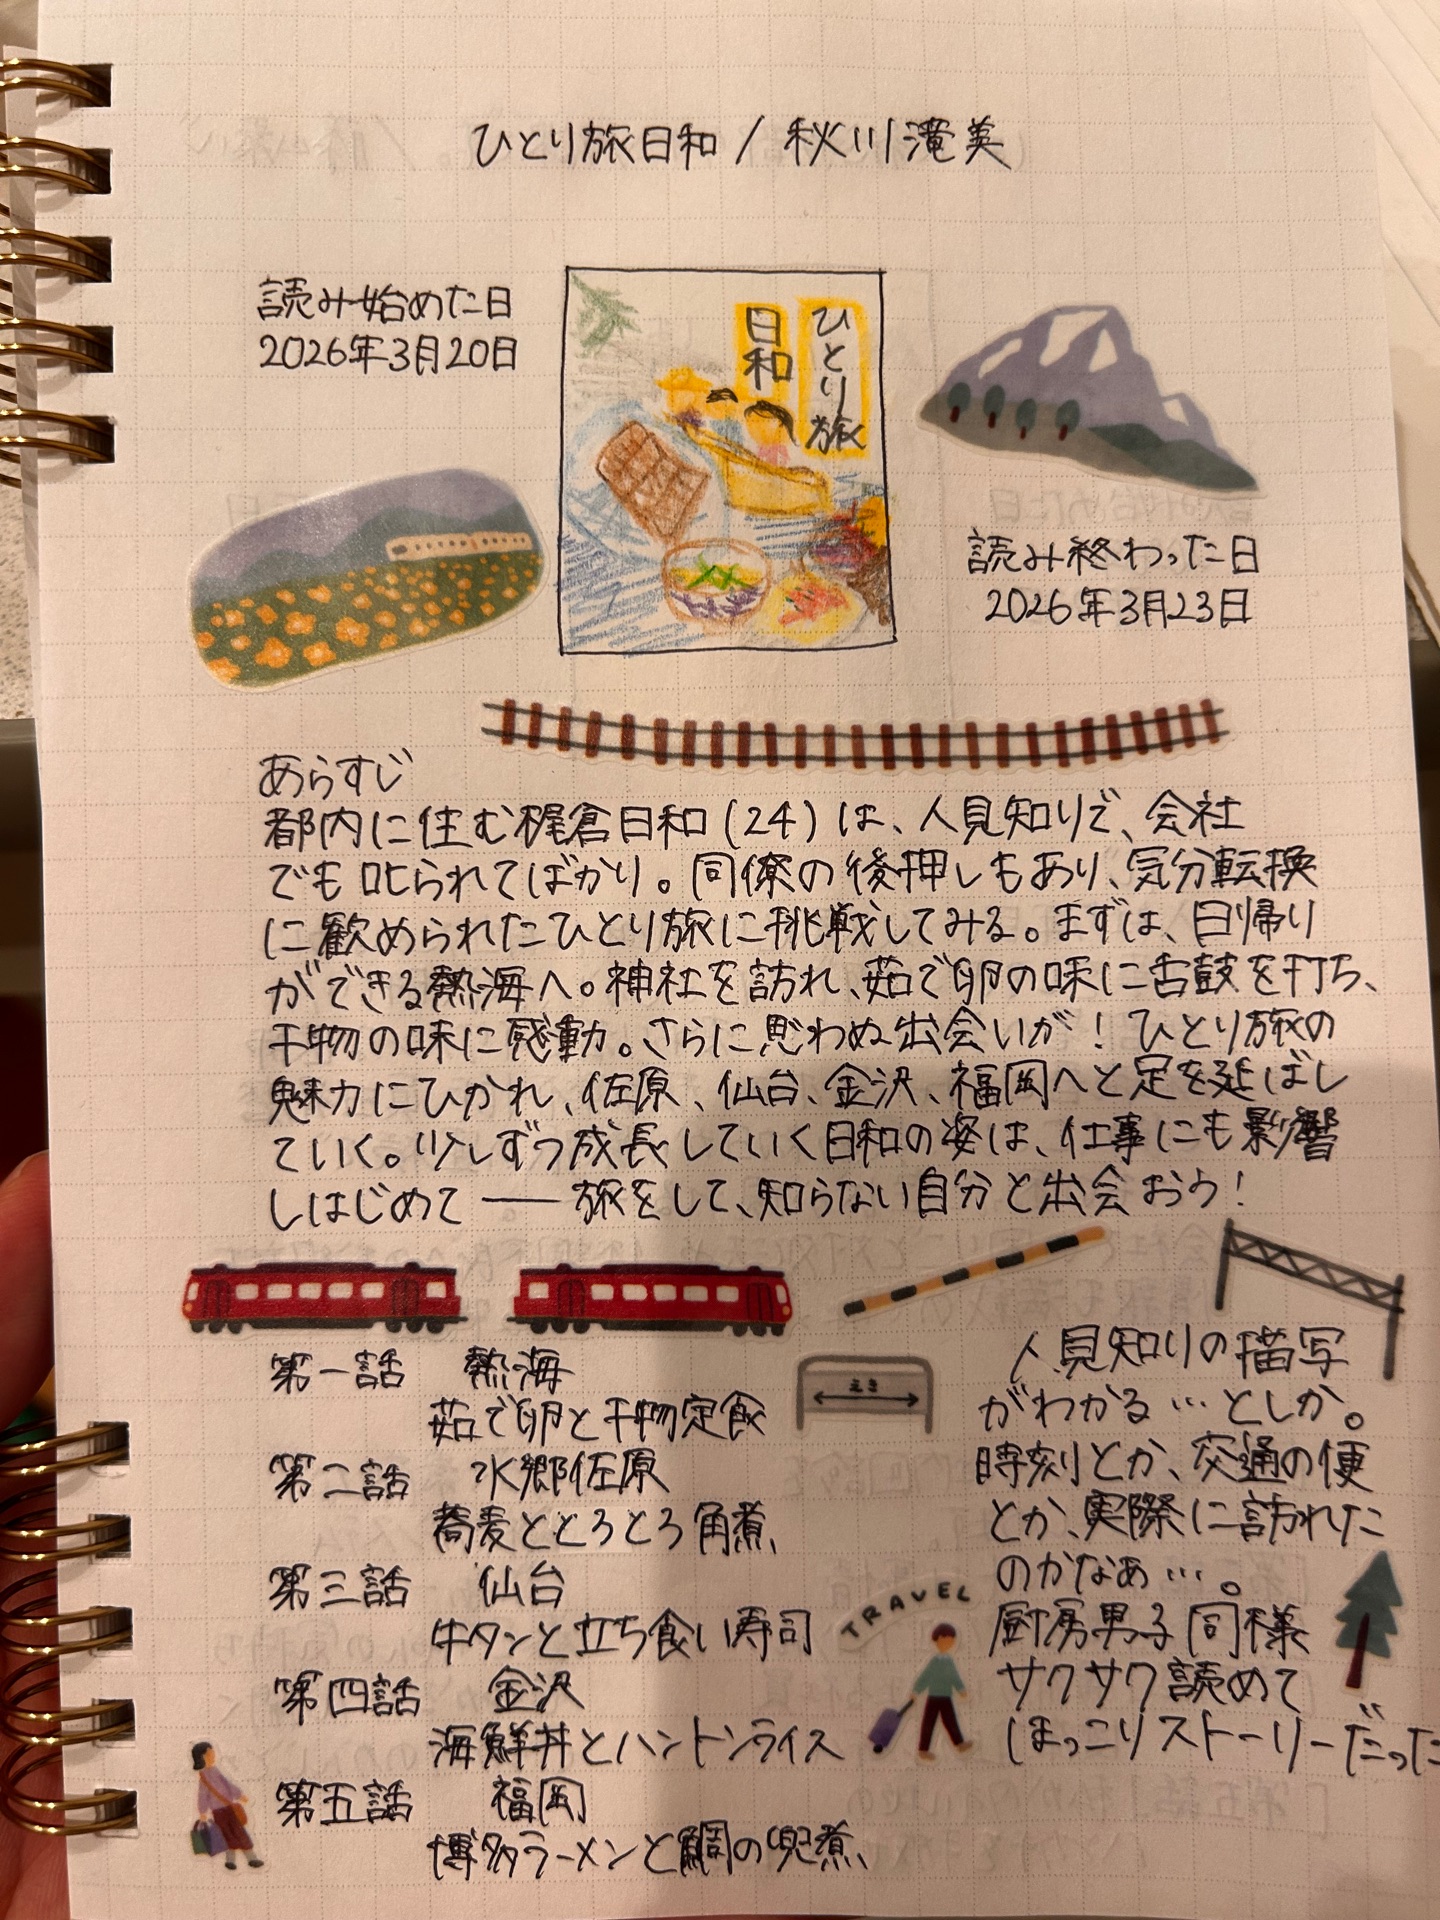 ひとり旅日和 / 秋川滝美
読み始めた日
2026年3月20日
ひとり旅
日和
読み終わった日
2026年3月23日
あらすじ
都内に住む梶倉日和(24)は、人見知りで、会社
でも叱られてばかり。同僚の後押しもあり、気分転換
に歓められたひとり旅に挑戦してみる。まずは、日帰り
ができる熱海へ。神社を訪れ、茹で卵の味に舌鼓を打ち、
干物の味に感動。さらに思わぬ出会いが!ひとり旅の
魅力にひかれ、佐原、仙台、金沢、福岡へと足を延ばし
ていく。少しずつ成長していく日和の姿は、仕事にも影響
しはじめて――旅をして、知らない自分と出会おう!
第一話 熱海
茹で卵と干物定食
第二話 水郷佐原
蕎麦ととろとろ角煮
第三話 仙台
牛タンと立ち食い寿司
第四話 金沢
海鮮丼とハントンライス
第五話 福岡
博多ラーメンと鯛の兜煮
えき
人見知りの描写
がわかる…としか。
時刻とか、交通の便
とか、実際に訪れた
のかなぁ…。
厨房男子同様
サクサク読めて
ほっこりストーリーだった
TRAVEL